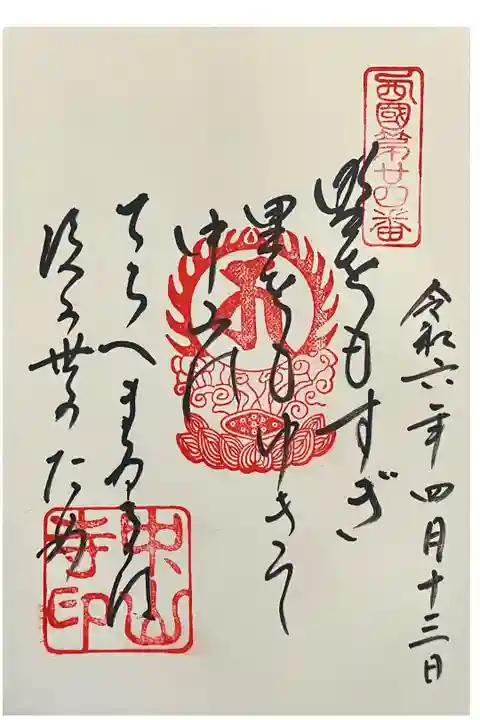 西國第廿四番
令和六年四月十三日
野をもすぎ
里をもゆきて
中山の
てらへまゐるは
後の世のため
中山
寺印